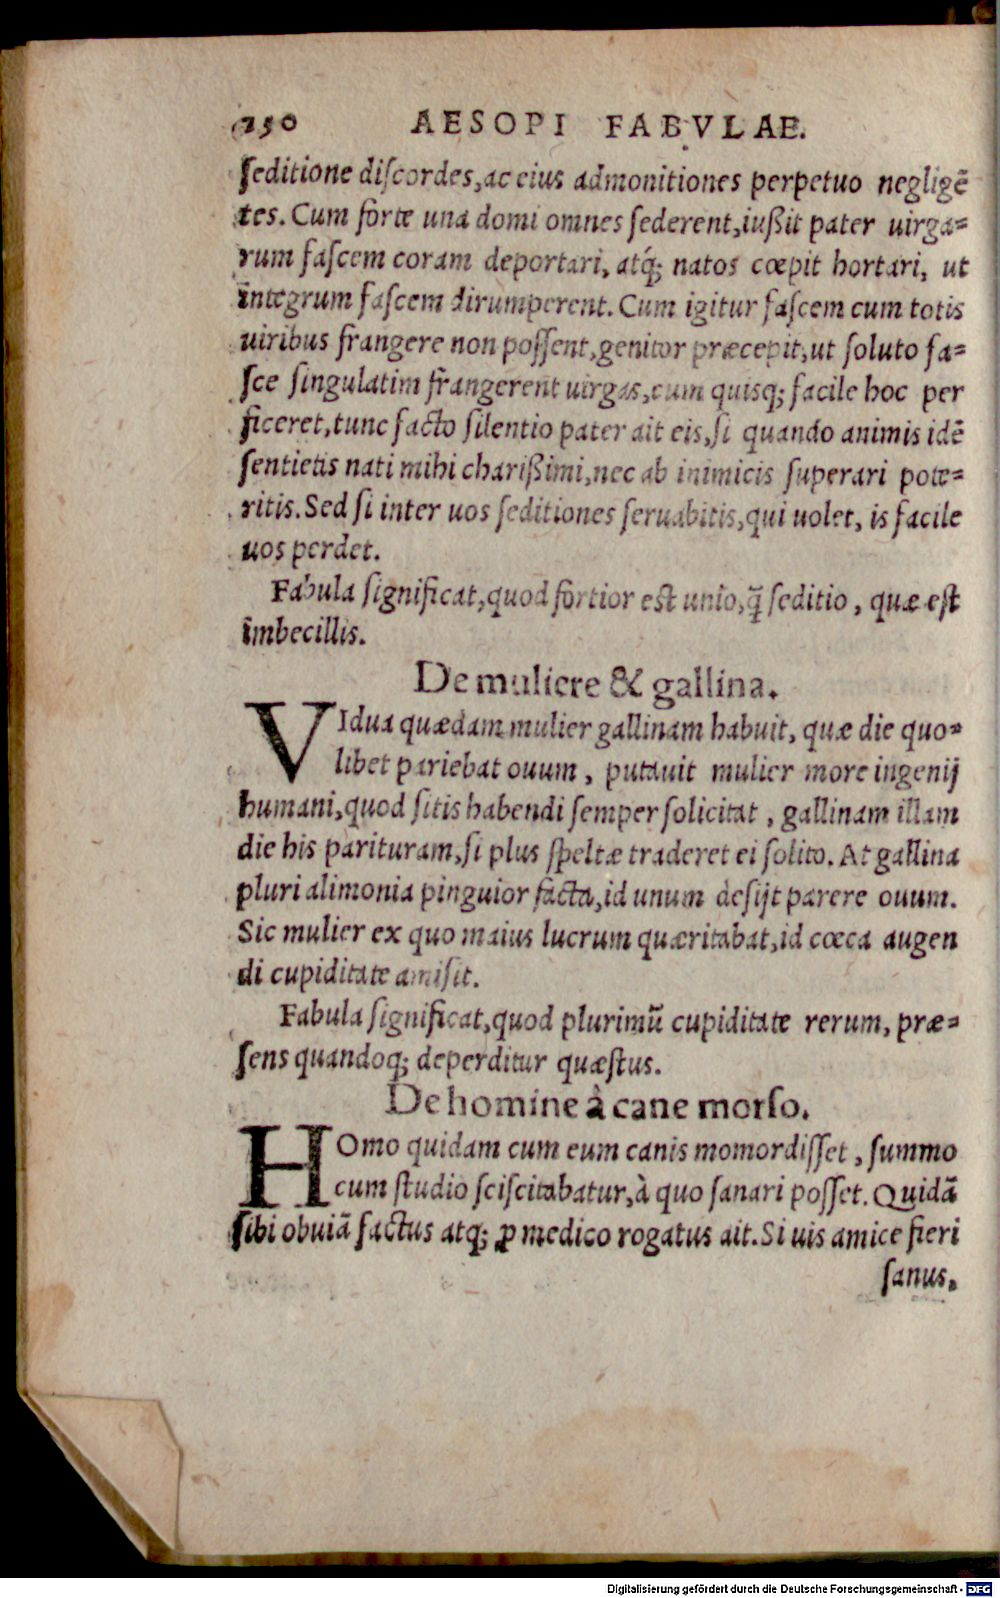 250 AESOPI FABVLAE.
ſeditione diſcordes, ac eius admonitiones perpetuo negligē
tes. Cum forte una domi omnes ſederent, iußit pater uirga-
rum faſcem coram deportari, atq́; natos cœpit hortari, ut
integrum faſcem dirumperent. Cum igitur faſcem cum totis
uiribus frangere non poſſent, genitor præcepit, ut ſoluto fa-
ſce ſingulatim frangerent uirgas, cum quisq; facile hoc per
ficeret, tunc facto ſilentio pater ait eis, ſi quando animis idē
ſentietis nati mihi charißimi, nec ab inimicis ſuperari pote-
ritis. Sed ſi inter uos ſeditiones ſeruabitis, qui uolet, is facile
uos perdet.
Fabula ſignificat, quod fortior eſt unio, q̃ ſeditio, quæ eſt
imbecillis.
De muliere & gallina.
VIdua quædam mulier gallinam habuit, quæ die quo-
libet pariebat ouum, putauit mulier more ingenij
humani, quod ſitis habendi ſemper ſolicitat, gallinam illam
die his parituram, ſi plus ſpeltæ traderet ei ſolito. At gallina
pluri alimonia pinguior facta, id unum deſijt parere ouum.
Sic mulier ex quo maius lucrum quæritabat, id cœca augen
di cupiditate amiſit.
Fabula ſignificat, quod plurimū cupiditate rerum, præ-
ſens quandoq; deperditur quæſtus.
De homine à cane morſo.
HOmo quidam cum eum canis momordiſſet, ſummo
cum ſtudio ſciſcitabatur, à quo ſanari poſſet. Quidā
ſibi obuiā factus atq; ꝓ medico rogatus ait. Si uis amice fieri
ſanus.
Digitalisierung gefördert durch die Deutsche Forschungsgemeinschaft - DFG